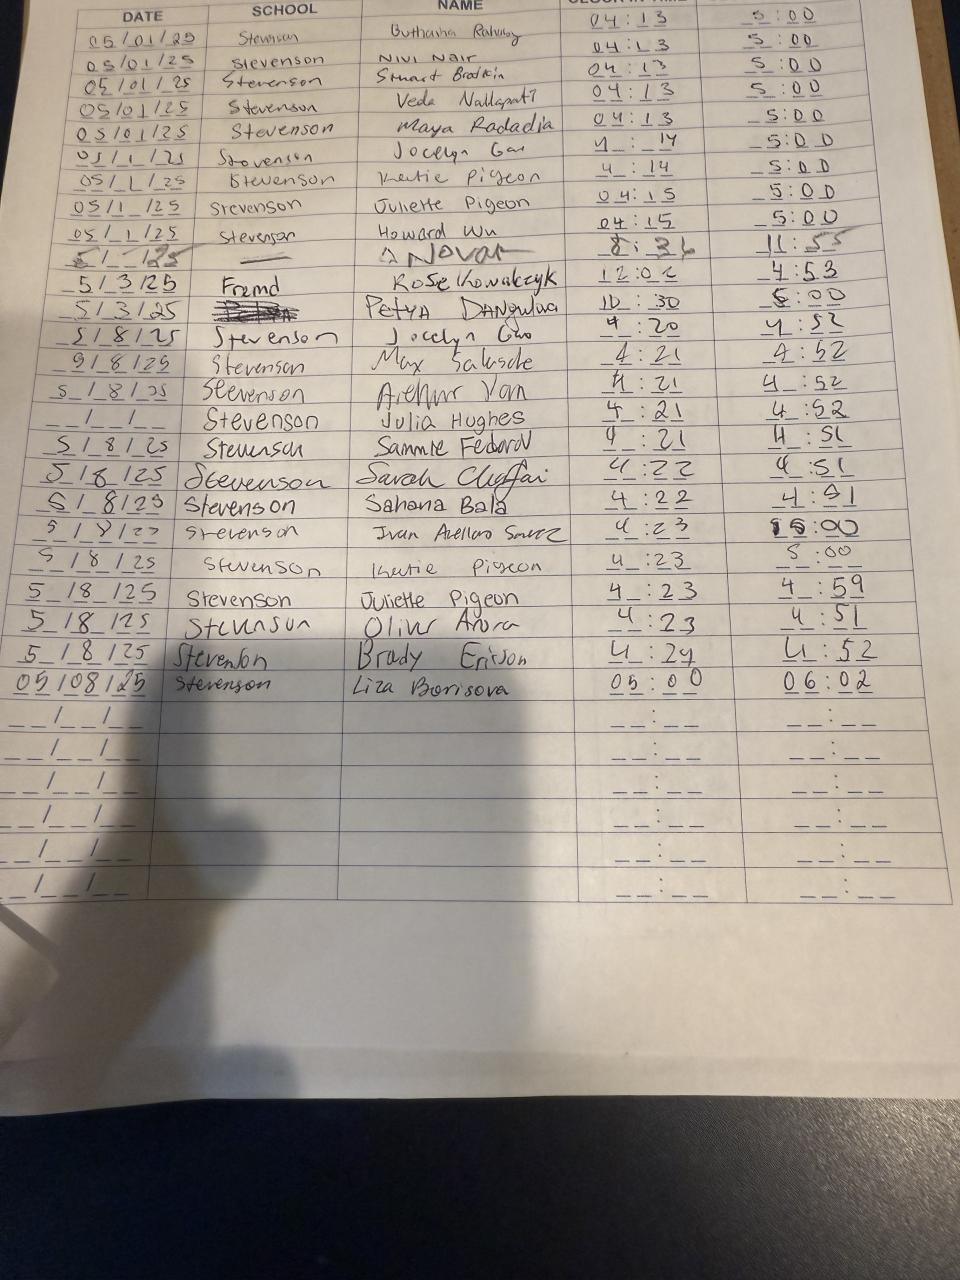 DATE SCHOOL NAME
05/01/25 Stevenson 04:13 5:00
05/01/25 Stevenson NIVI NAIR 04:13 5:00
05/01/25 Stevenson Stuart 04:13 5:00
05/01/25 Stevenson Veda Nallapati 04:13 5:00
05/01/25 Stevenson Maya Radadia 04:13 5:00
05/1/25 Stevenson Jocelyn Gao 4:14 5:00
05/1/25 Stevenson Katie Pigeon 4:14 5:00
05/1/25 Stevenson Juliette Pigeon 04:15 5:00
05/1/25 Stevenson Howard Wu 04:15 5:00
5/ /25 — 8:36 11:55
5/3/25 Fremd Rose Kowalczyk 12:02 4:53
5/3/25 Petya 10:30 5:00
5/8/25 Stevenson Jocelyn Gao 4:20 4:52
5/8/25 Stevenson Max 4:21 4:52
5/8/25 Stevenson Arthur Yan 4:21 4:52
Stevenson Julia Hughes 4:21 4:52
5/8/25 Stevenson Sammie Fedorov 4:21 4:51
5/8/25 Stevenson Sarah 4:22 4:51
5/8/25 Stevenson Sahana Bala 4:22 4:51
5/8/25 Stevenson Ivan 4:23 5:00
5/8/25 Stevenson Katie Pigeon 4:23 5:00
5/8/25 Stevenson Juliette Pigeon 4:23 4:59
5/8/25 Stevenson Oliver Arora 4:23 4:51
5/8/25 Stevenson Brady Ericson 4:24 4:52
05/08/25 Stevenson Liza Borisova 05:00 06:02